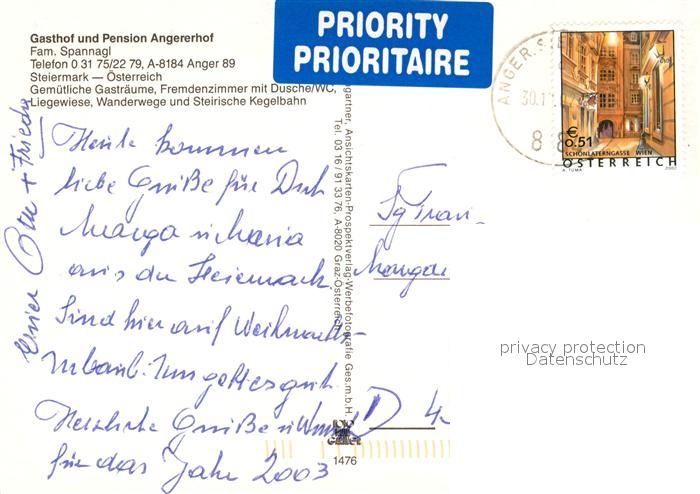 Gasthof und Pension Angererhof
Fam. Spannagl
Telefon 0 31 75/22 79, A-8184 Anger 89
Steiermark — Österreich
Gemütliche Gasträume, Fremdenzimmer mit Dusche/WC,
Liegewiese, Wanderwege und Steirische Kegelbahn
PRIORITY
PRIORITAIRE
ANGER
30.1
8
€
0.51
SCHÖNLATERNGASSE WIEN
ÖSTERREICH
A. TUMA 2002
Heute kommen
liebe Grüße für Dich
Marga u Maria
aus der Steiermark.
Sind hier auf Weihnachts-
urlaub. Uns gottes gut.
Herzliche Grüße u Wünsche
für das Jahr 2003
Otto + Frieda
gartner, Ansichtskarten-Prospektverlag-Werbefotografie Ges.m.b.H.
Tel. 03 16/91 33 76, A-8020 Graz-Österreich
D 4
1476
privacy protection
Datenschutz